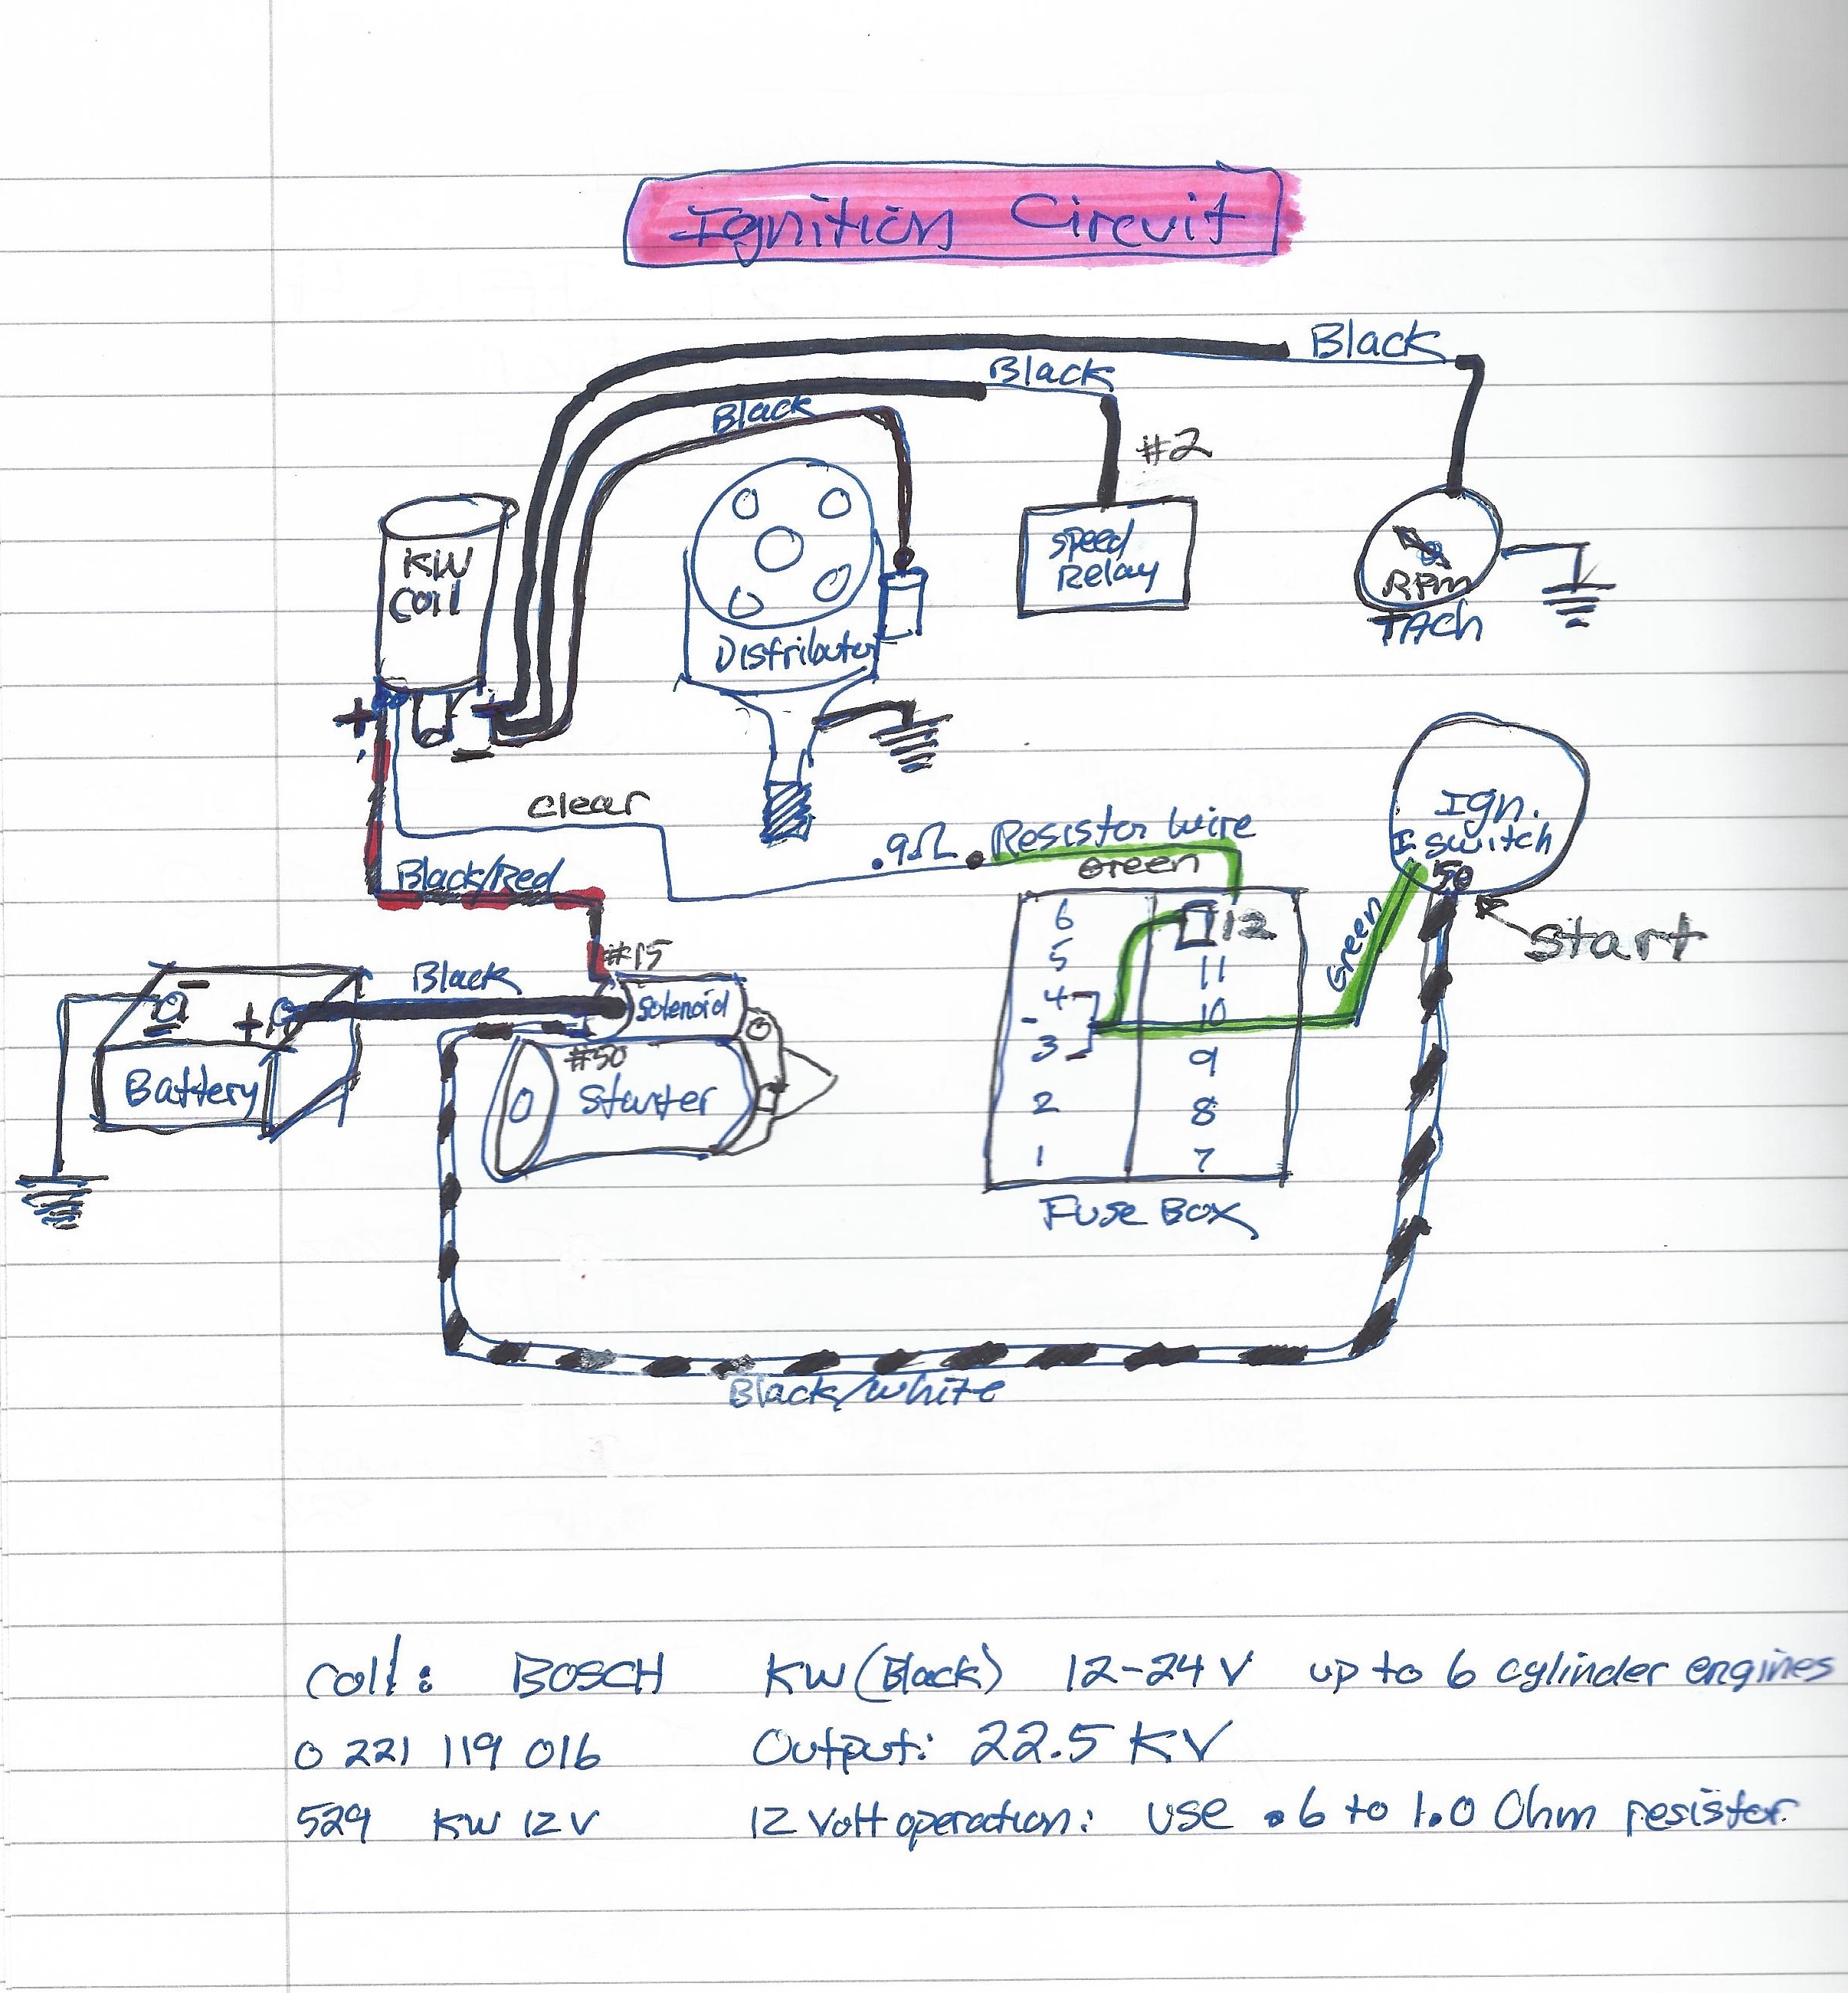 Ignition Circuit
Black
Black
Black
#2
KW
Coil
Speed
Relay
RPM
TAch
Distributer
+
-
Clear
.9Ω Resister Wire
Green
Ign.
Switch
50
Start
Black/Red
#15
Black
Solenoid
-
+
Battery
#50
Starter
6
5
4
-
3
2
1
12
11
10
9
8
7
Green
Fuse Box
Black/White
Coil: BOSCH KW (Black) 12-24 V up to 6 cylinder engines
0 221 119 016 Output: 22.5 KV
529 KW 12 V 12 Volt operation: use .6 to 1.0 Ohm resistor.